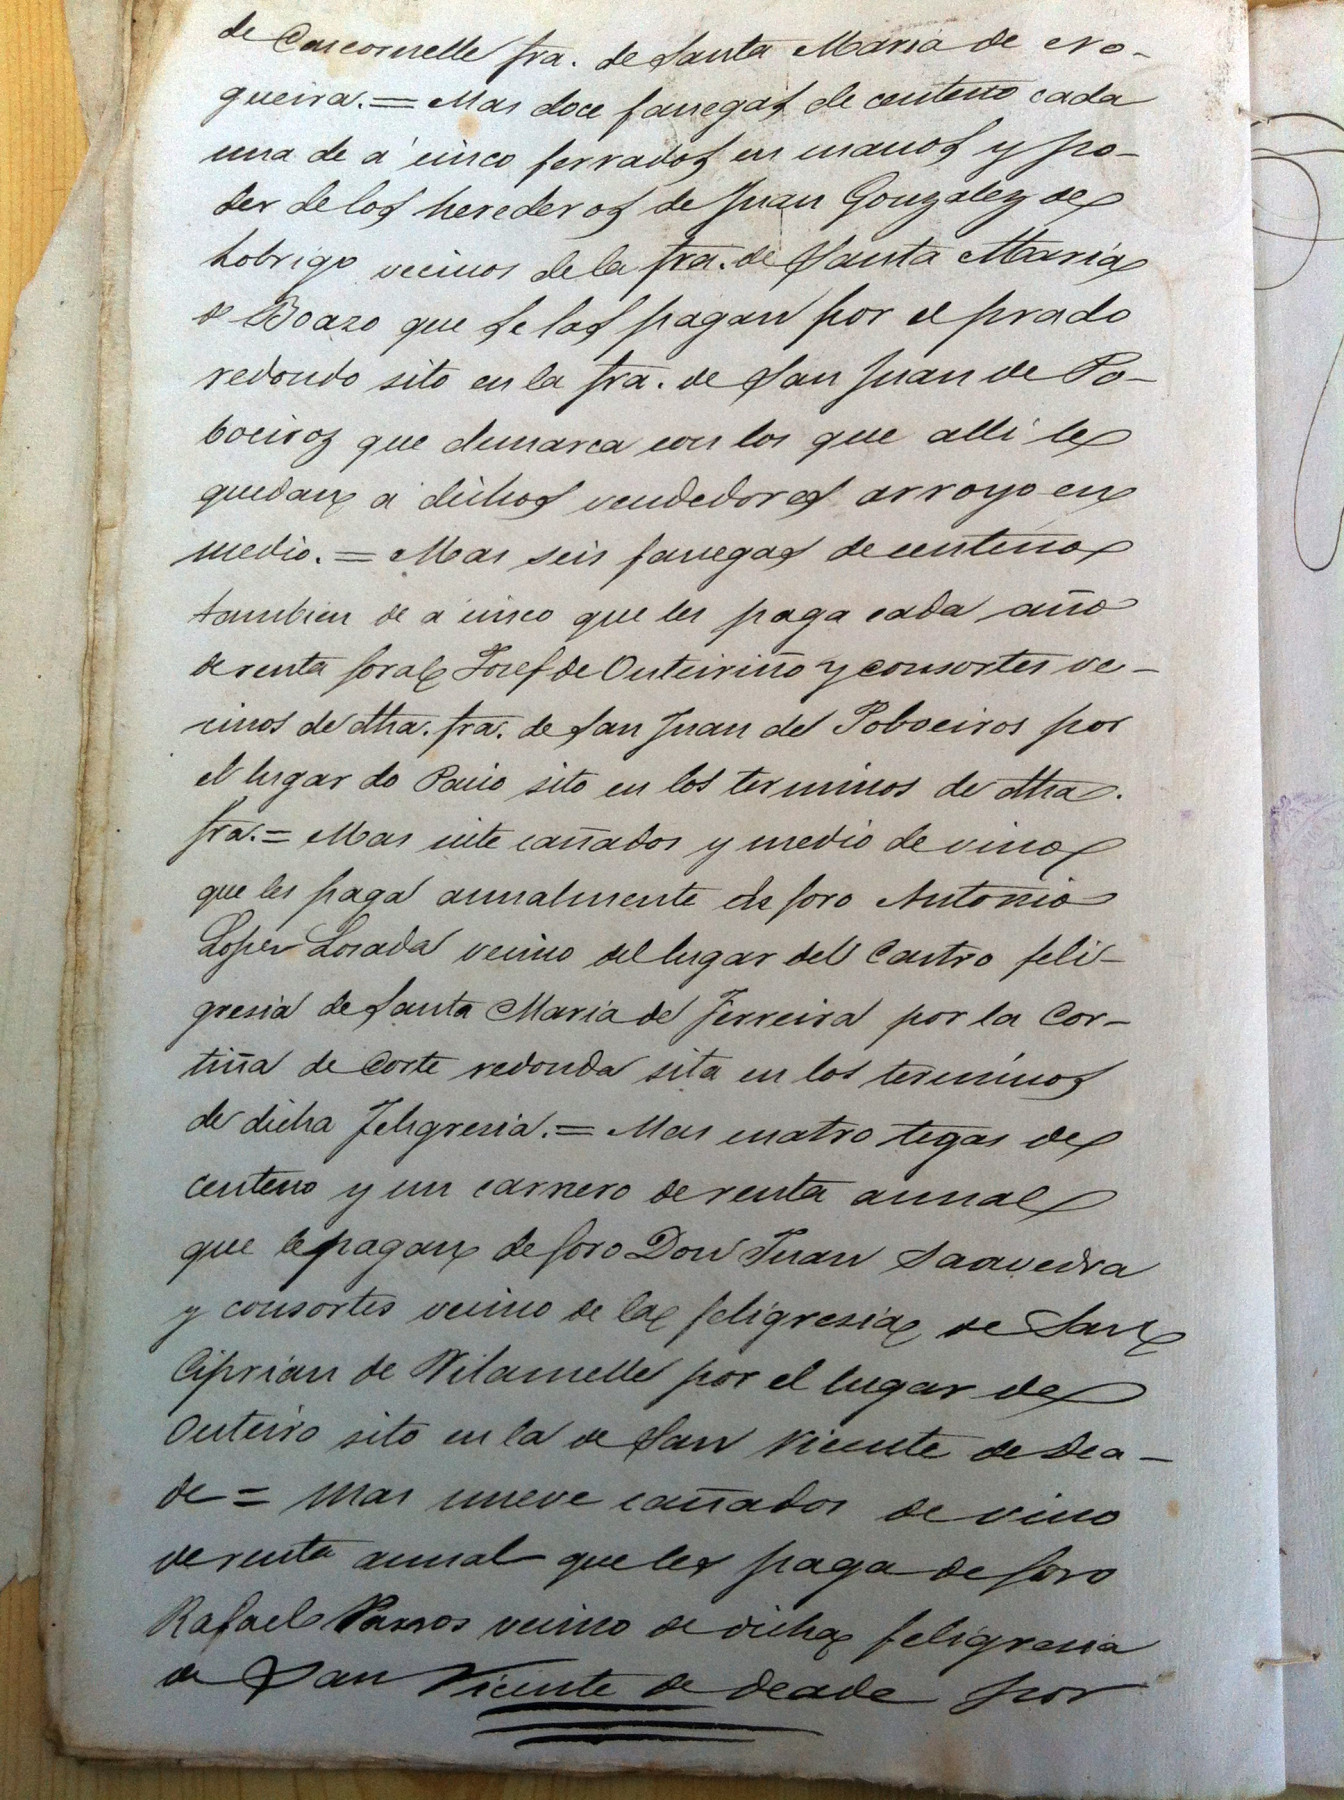 de Cascornelle fra. de Santa Maria de No-
gueira. = Mas doce fanegas de centeno cada
una de á cinco ferrados en manos y po-
der de los herederos de Juan Gonzalez de
Lobrigo vecinos de la fra. de Santa María
de Boazo que se las pagan por el prado
redondo sito en la fra. de San Juan de Po-
boeiros que demarca con los que alli le
quedan á dichos vendedores arroyo en
medio. = Mas seis fanegas de centeno
tambien de á cinco que les paga cada año
de renta foral Josef de Outeiriño y consortes ve-
cinos de dha. fra. de San Juan de Poboeiros por
el lugar do Pacio sito en los terminos de dha.
fra. = Mas siete cañados y medio de vino
que les paga annalmente de foro Antonio
Lopez Losada vecino del lugar del Castro feli-
gresia de Santa Maria de Ferreira por la Cor-
tiña de Corte redonda sita en los terminos
de dicha Feligresia. = Mas cuatro tegas de
centeno y un carnero de renta annal
que le pagan de foro Don Juan Saavedra
y consortes vecino de la feligresia de San
Ciprian de Vilamelle por el lugar de
Outeiro sito en la de San Vicente de Dea-
de = Mas nueve cañados de vino
de renta annal que les paga de foro
Rafael vecino de dicha feligresia
de San Vicente de deade por